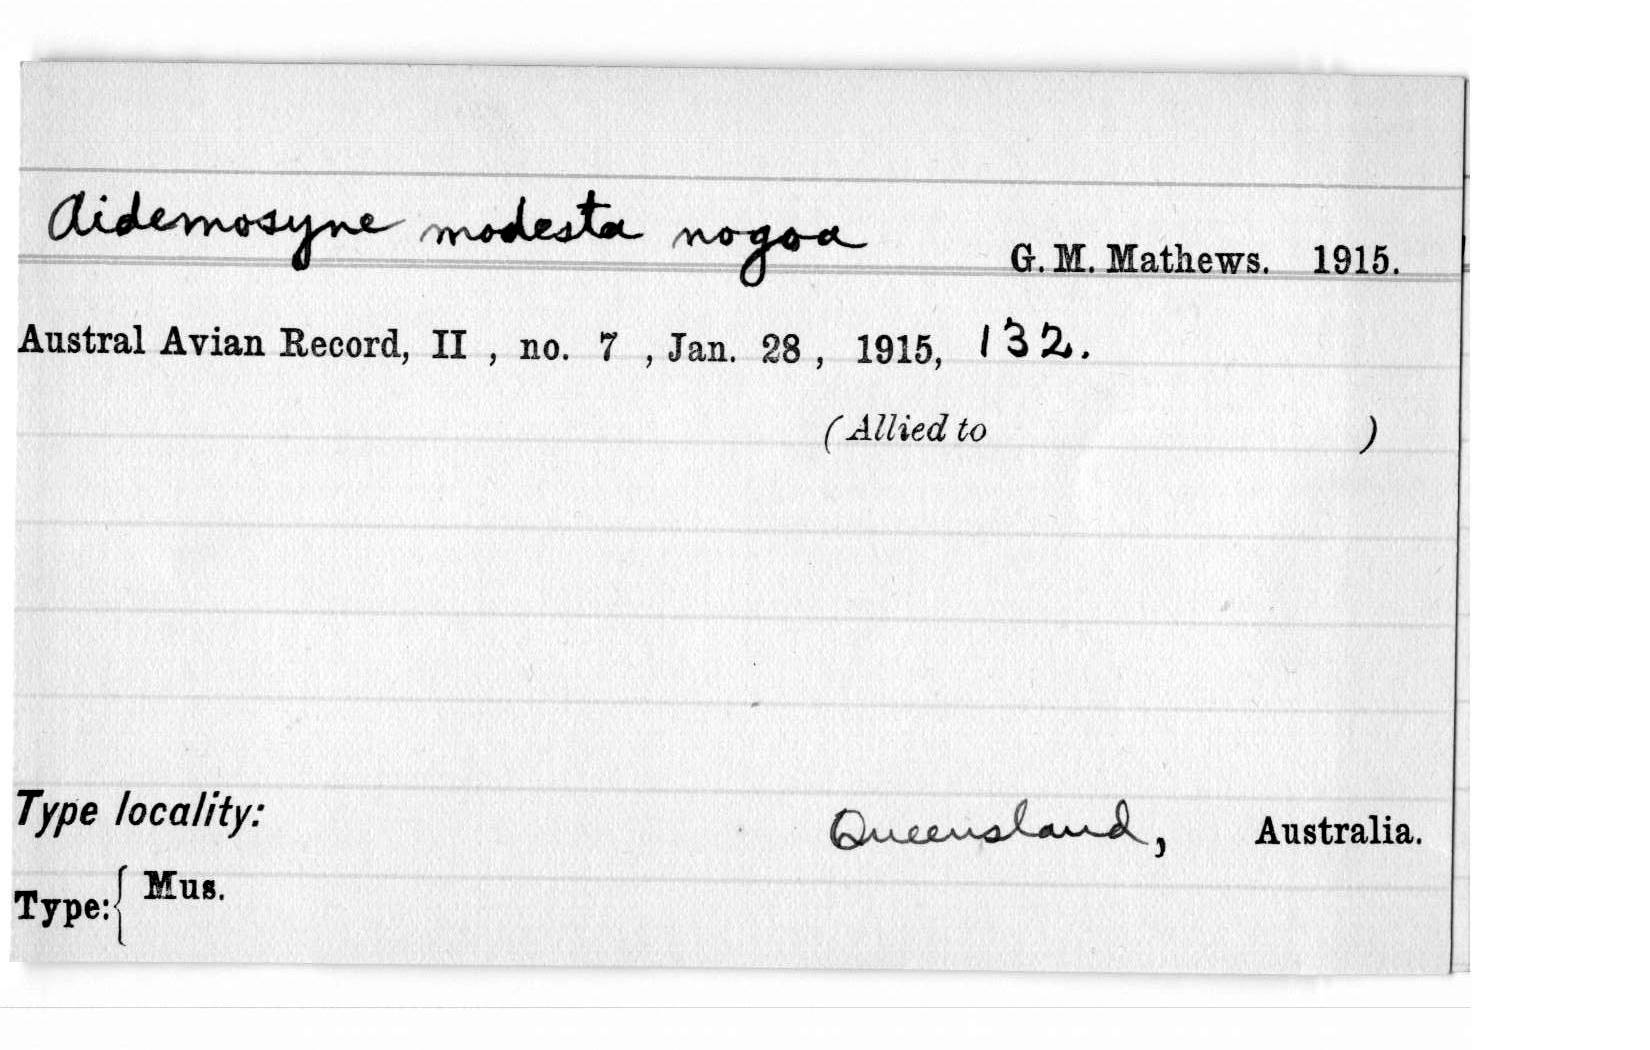 Aidemosyne modesta nogoa G. M. Mathews. 1915.
Austral Avian Record, II , no. 7 , Jan. 28 , 1915, 132.
(Allied to )
Type locality: Queensland, Australia.
Type: { Mus.